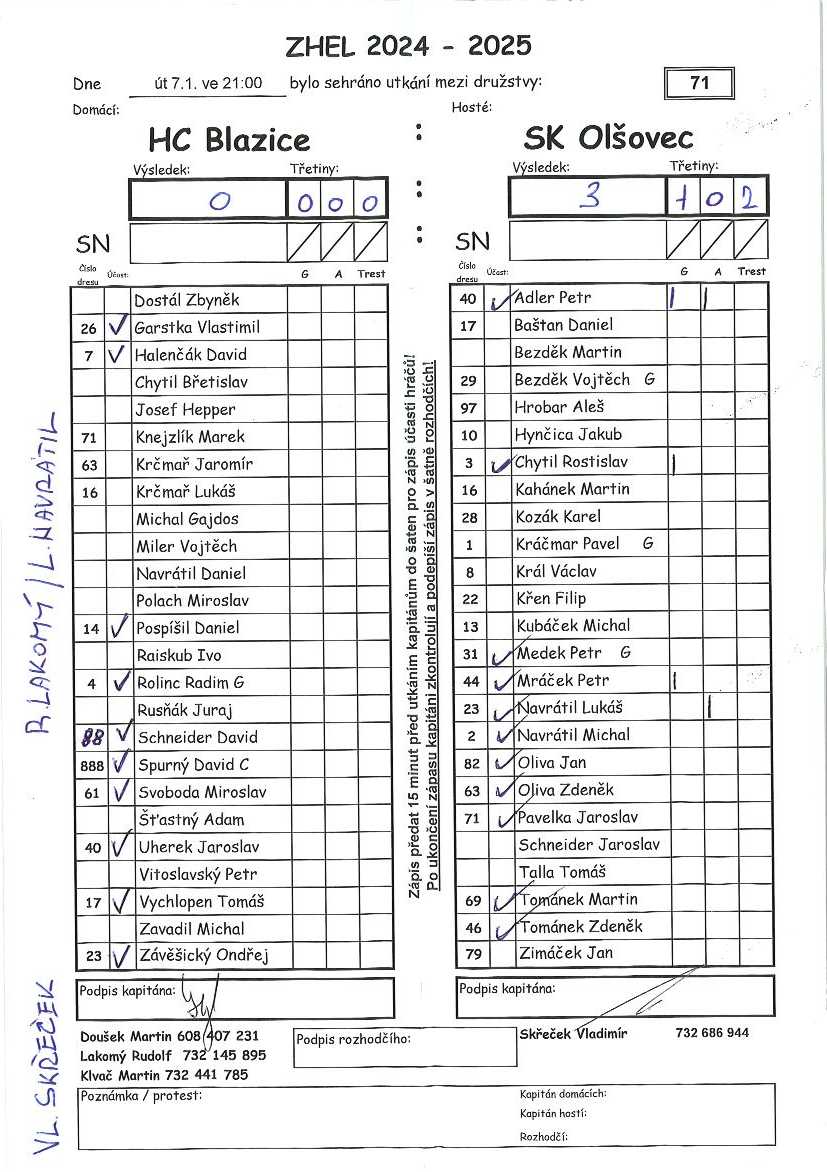 ZHEL 2024 - 2025
Dne út 7.1. ve 21:00 bylo sehráno utkání mezi družstvy: 71
Domácí: Hosté:
HC Blazice : SK Olšovec
Výsledek: Třetiny: Výsledek: Třetiny:
0 0 0 0 : 3 1 0 2
SN : SN
Číslo dresu Účast: G A Trest Číslo dresu Účast: G A Trest
Dostál Zbyněk
26 ✓ Garstka Vlastimil
7 ✓ Halenčák David
Chytil Břetislav
Josef Hepper
71 Knejzlík Marek
63 Krčmař Jaromír
16 Krčmař Lukáš
Michal Gajdos
Miler Vojtěch
Navrátil Daniel
Polach Miroslav
14 ✓ Pospíšil Daniel
Raiskub Ivo
4 ✓ Rolinc Radim G
Rusňák Juraj
88 ✓ Schneider David
888 ✓ Spurný David C
61 ✓ Svoboda Miroslav
Šťastný Adam
40 ✓ Uherek Jaroslav
Vitoslavský Petr
17 ✓ Vychlopen Tomáš
Zavadil Michal
23 ✓ Závěšický Ondřej
40 ✓ Adler Petr | |
17 Baštan Daniel
Bezděk Martin
29 Bezděk Vojtěch G
97 Hrobar Aleš
10 Hynčica Jakub
3 ✓ Chytil Rostislav |
16 Kahánek Martin
28 Kozák Karel
1 Kráčmar Pavel G
8 Král Václav
22 Křen Filip
13 Kubáček Michal
31 ✓ Medek Petr G
44 ✓ Mráček Petr |
23 ✓ Navrátil Lukáš |
2 ✓ Navrátil Michal
82 ✓ Oliva Jan
63 ✓ Oliva Zdeněk
71 ✓ Pavelka Jaroslav
Schneider Jaroslav
Talla Tomáš
69 ✓ Tománek Martin
46 ✓ Tománek Zdeněk
79 Zimáček Jan
Zápis předat 15 minut před utkáním kapitánům do šaten pro zápis účasti hráčů!
Po ukončení zápasu kapitáni zkontrolují a podepíší zápis v šatně rozhodčích!
R. LAKOMÝ / L. NAVRÁTIL
VL. SKŘEČEK
Podpis kapitána: Podpis kapitána:
Doušek Martin 608 407 231
Lakomý Rudolf 732 145 895
Klvač Martin 732 441 785
Podpis rozhodčího:
Skřeček Vladimír 732 686 944
Poznámka / protest:
Kapitán domácích:
Kapitán hostí:
Rozhodčí: